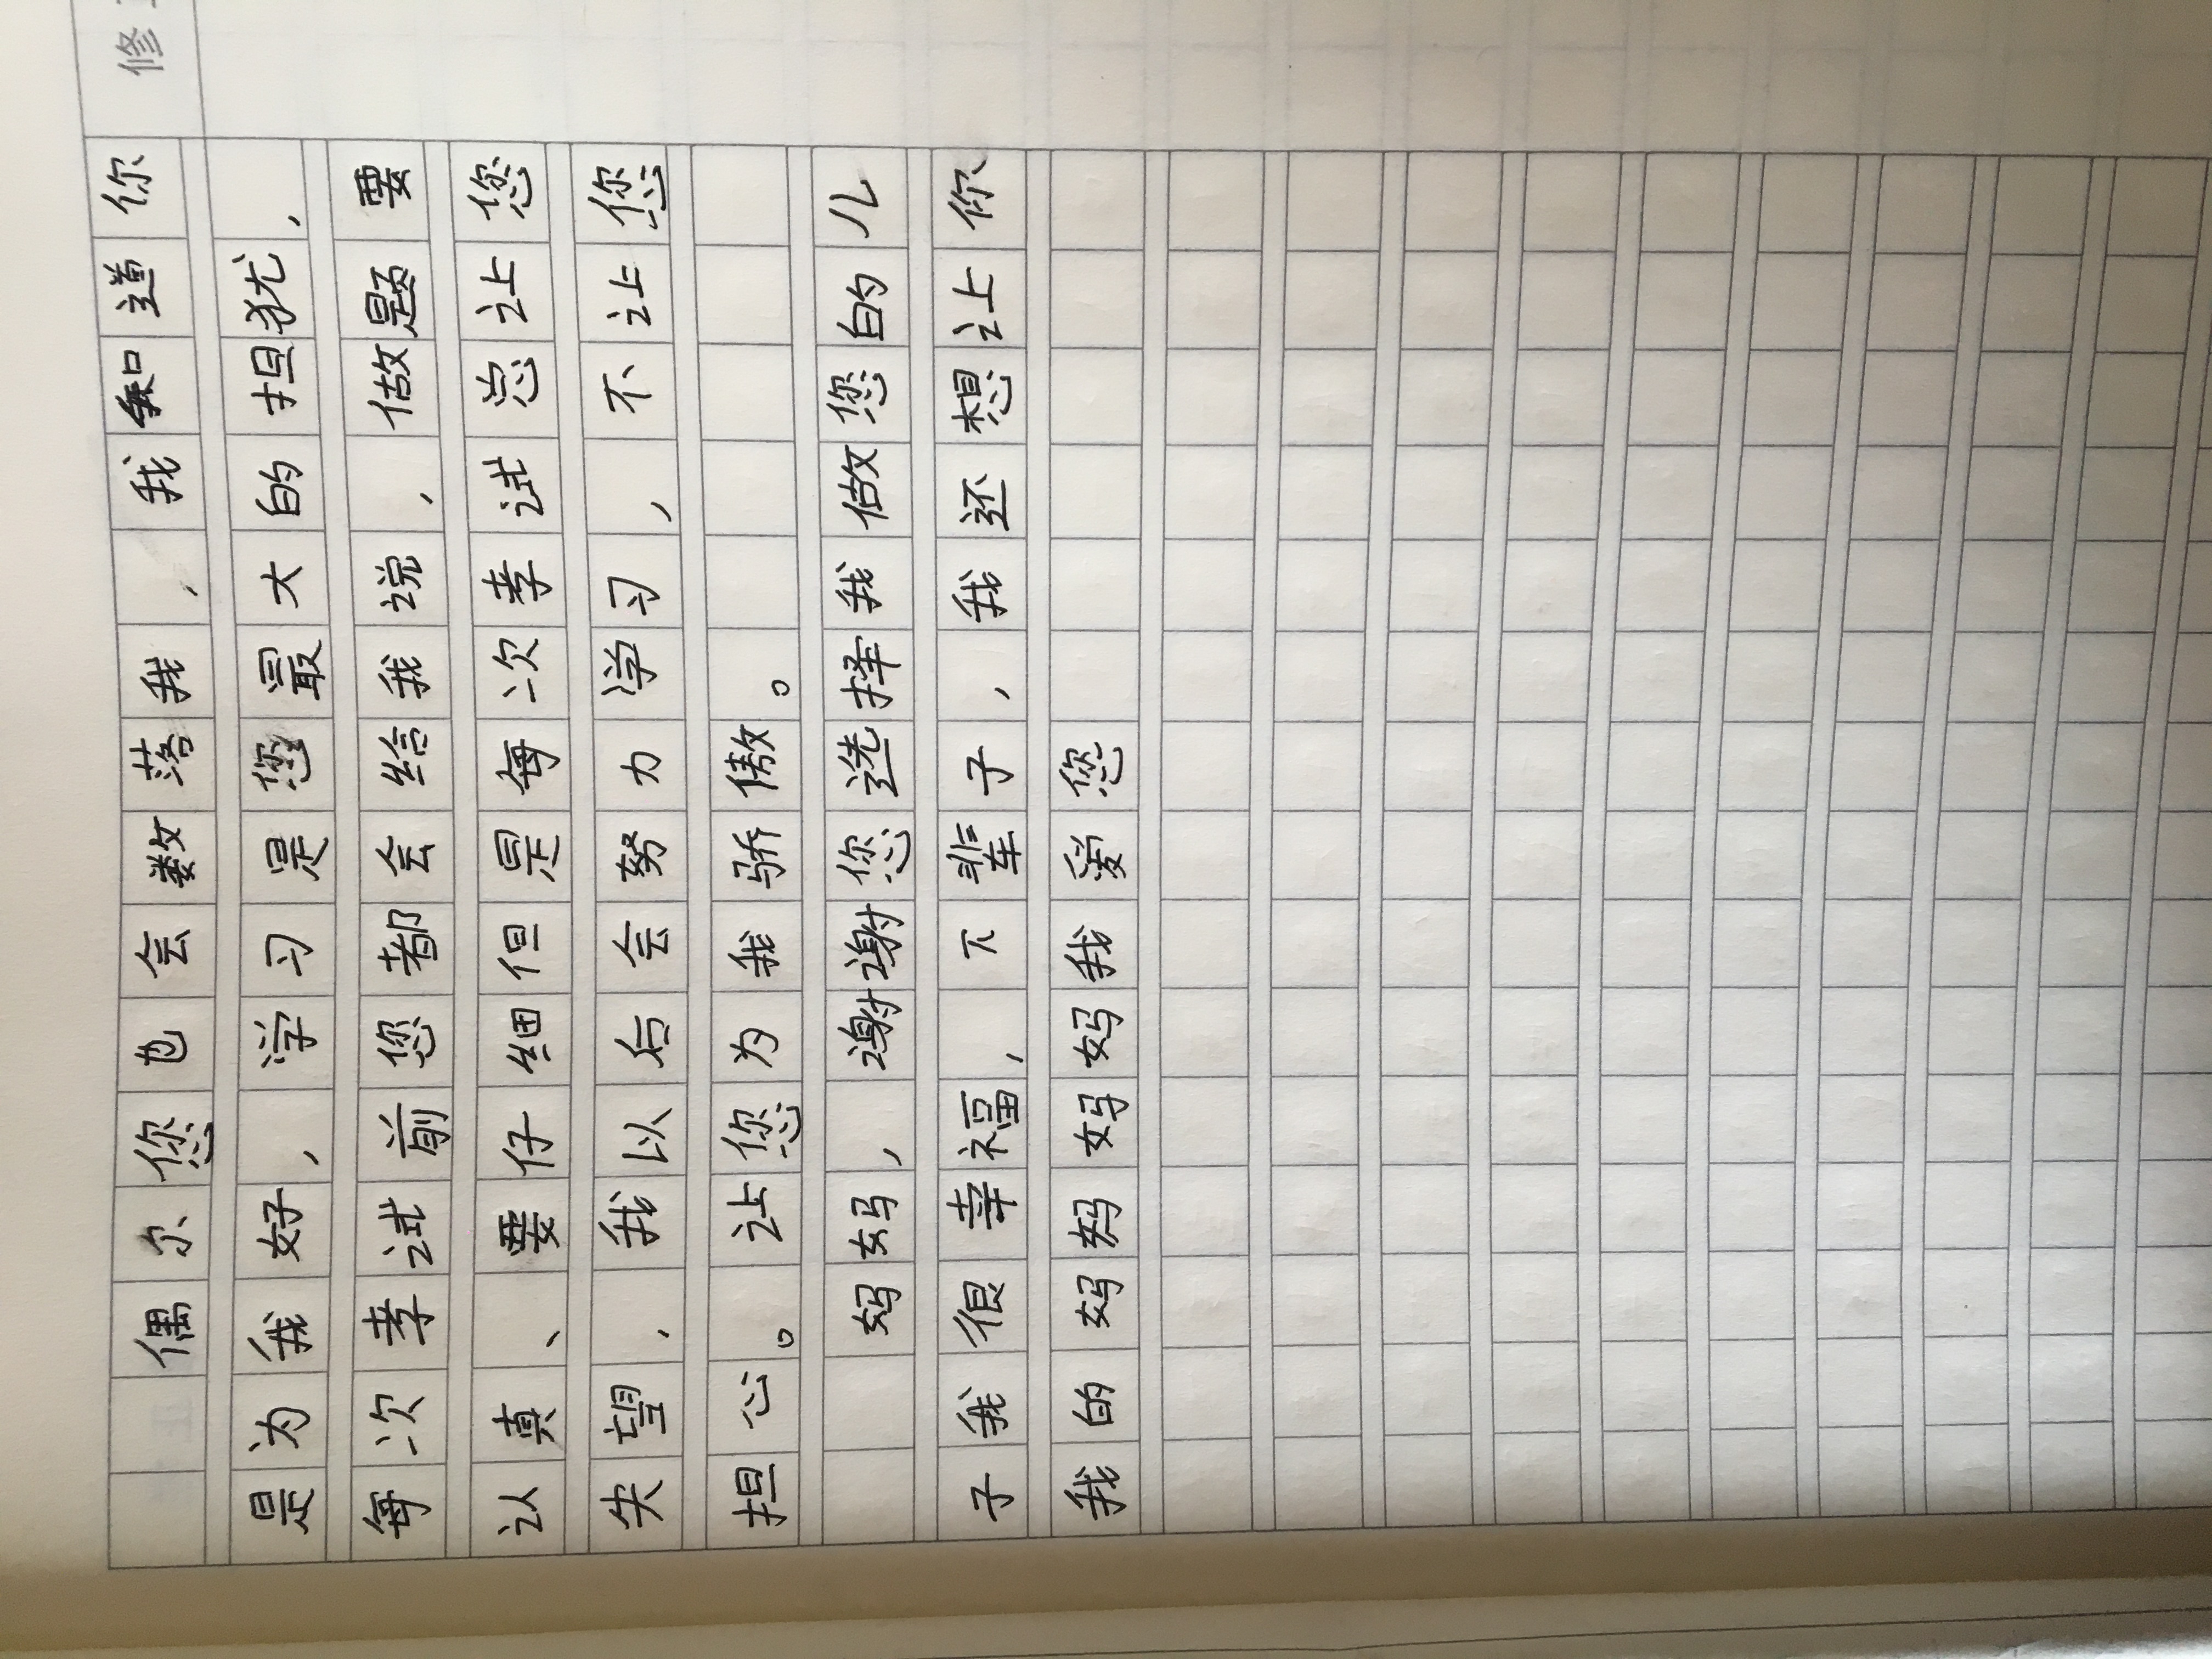 修
偶尔您也会数落我，我知道你
是为我好，学习是您最大的担犹，
每次考试前您都会给我说，做题要
认真、要仔细但是每次考试总让您
失望，我以后会努力学习，不让您
担心。让您为我骄傲。
妈妈，谢谢您选择我做您的儿
子我很幸福，下辈子，我还想让你
我的妈妈妈妈我爱您